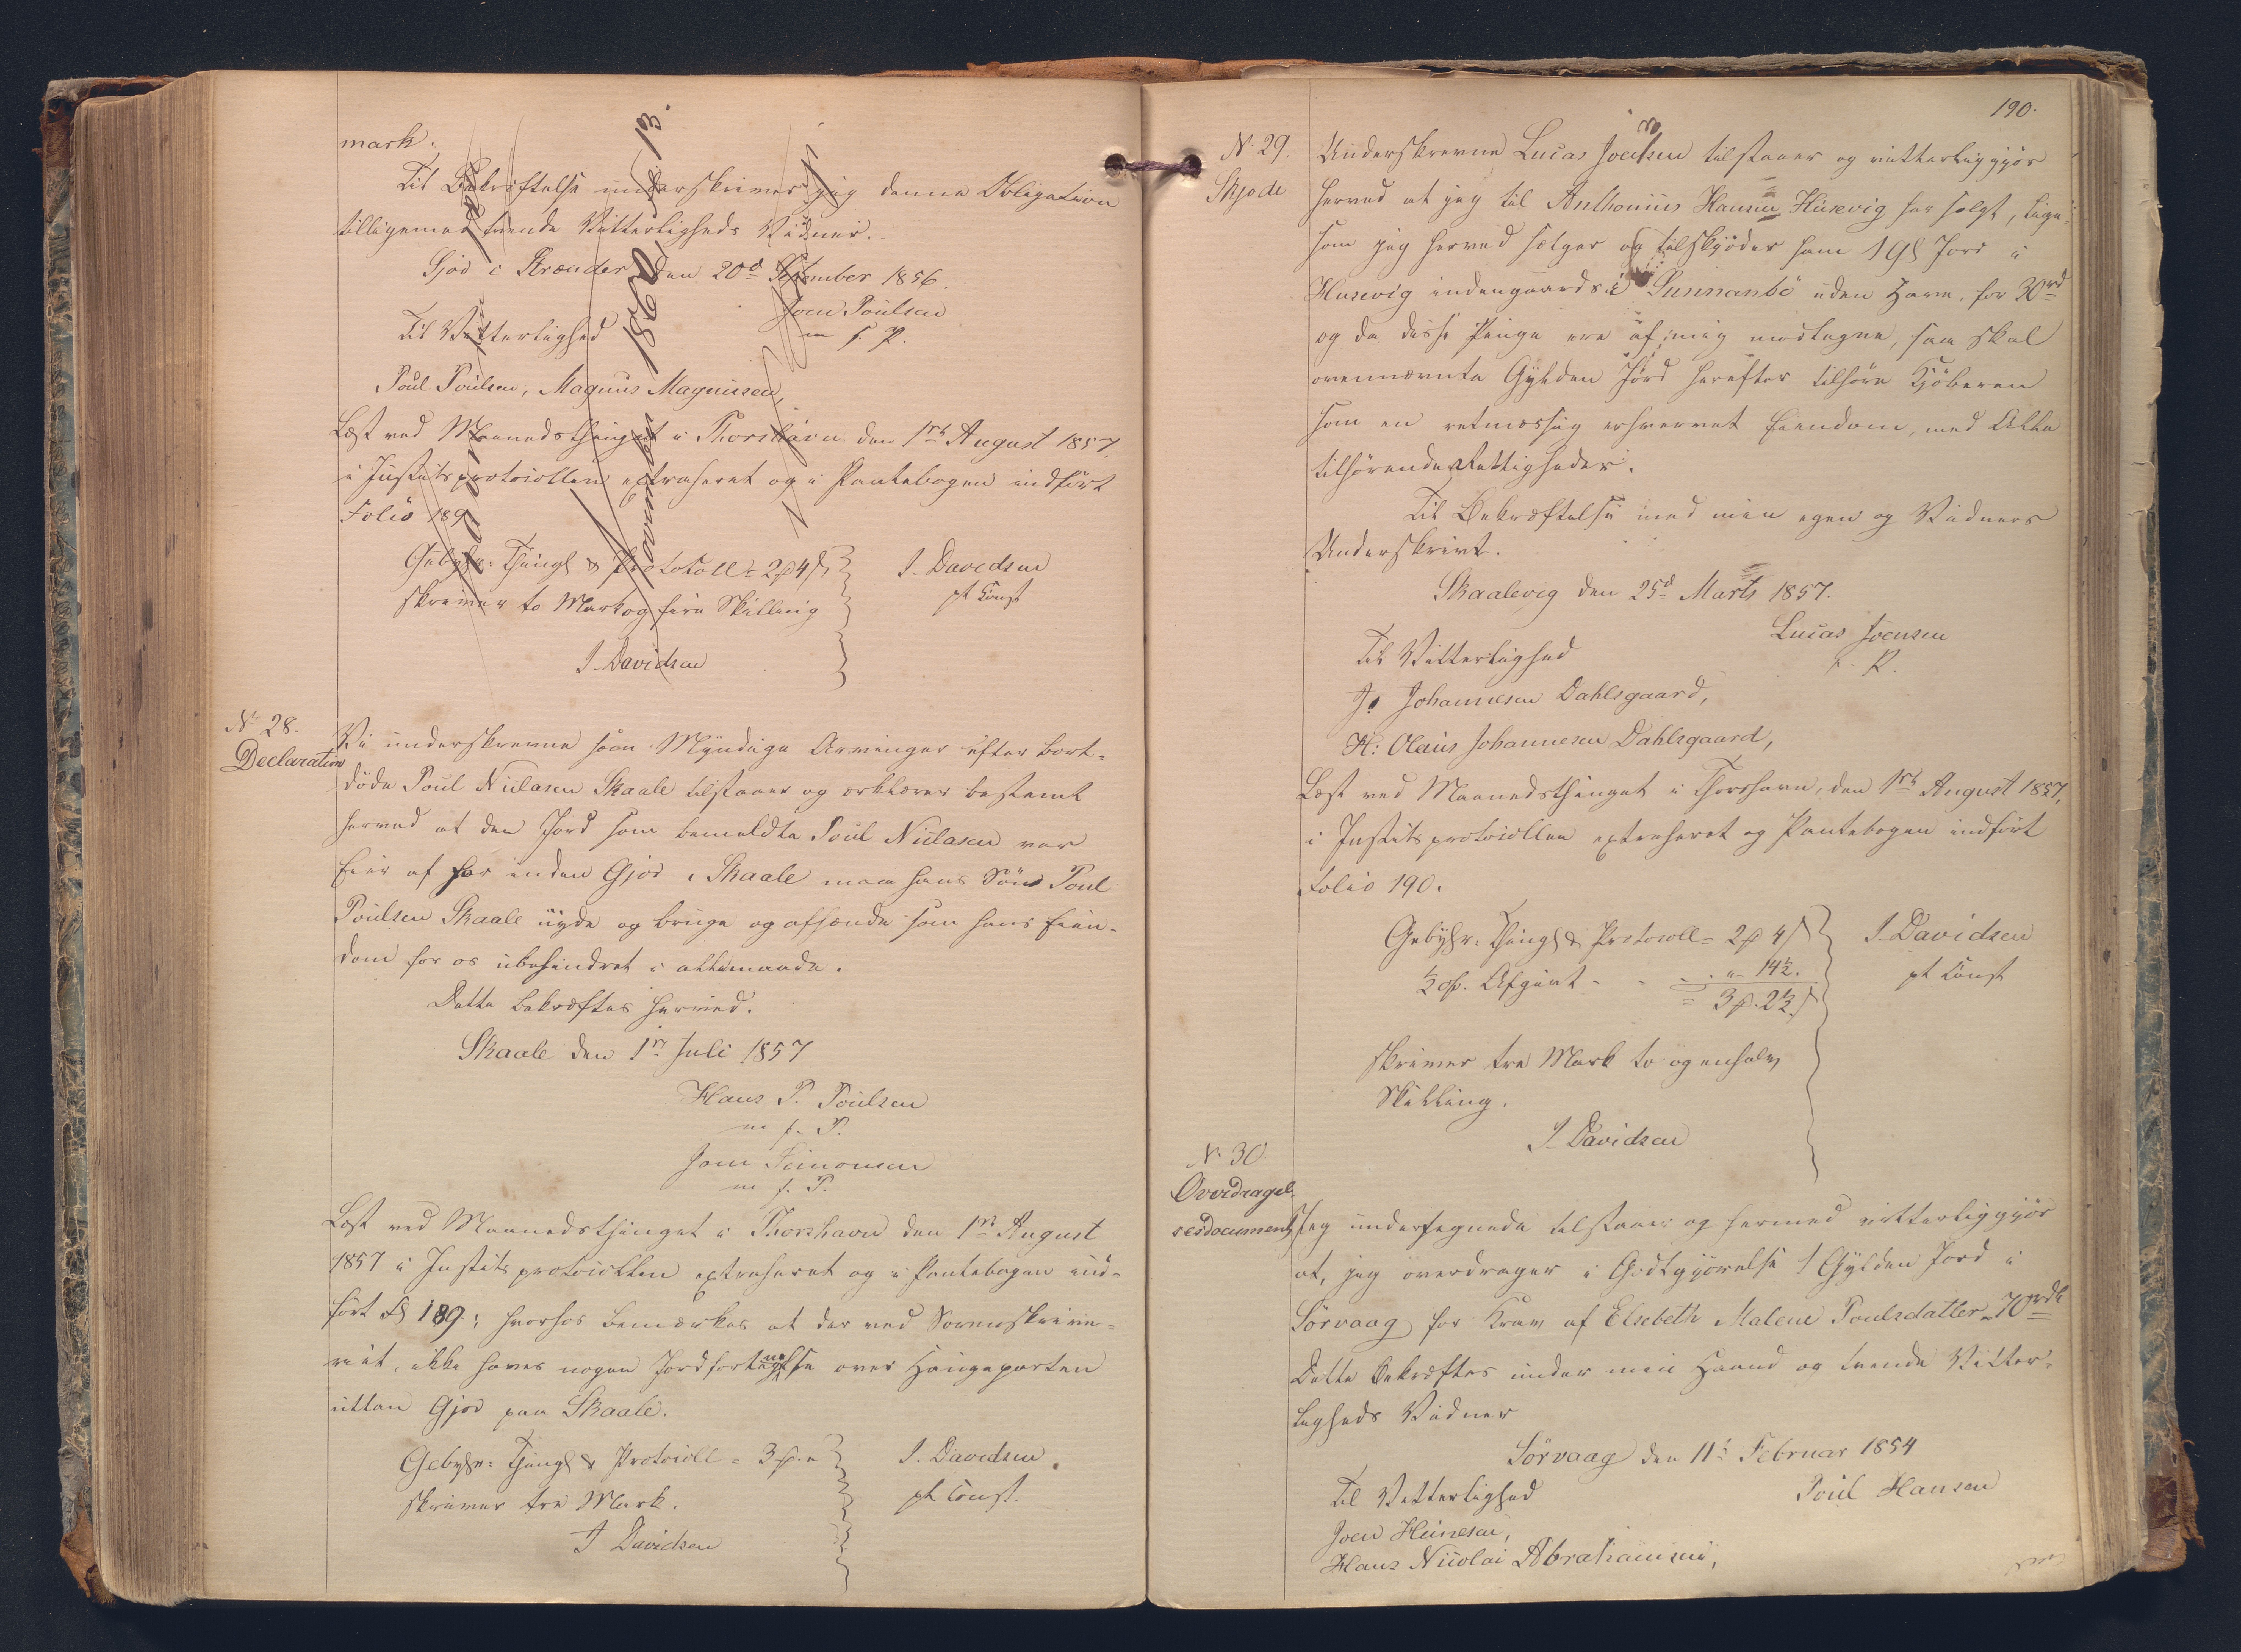 mark.
Til Bekræftelse underskriver jeg denne Obligation
tilligemed tvende Vitterligheds Vidner.
Gjov i Strænder den 20d September 1856.
Joen Poulsen
m f. P.
Til Vitterlighed
Poul Poulsen, Magnus Magnusen,
Læst ved Maanedsthinget i Thorshavn den 1ste August 1857,
i Justitsprotocollen extraheret og i Pantebogen indført
Folio 189.
Gebyhr: Thingl & Protocoll = 2 ℳ 4 ß,
skriver to Mark og fire Skilling
J. Davidsen
J. Davidsen
pt Const
1860
13.
No 28.
Declaration
Vi underskrevne som Myndige Arvinger efter bort-
døde Poul Niclasen Skaale tilstaaer og erklærer bestemt
herved at den Jord som bemeldte Poul Niclasen var
Eier af her inden Gjov i Skaale maa hans Søn Poul
Poulsen Skaale nyde og bruge og afhænde som hans Eien-
dom for os ubehindret i allemaade.
Dette bekræftes herved.
Skaale den 1ste Juli 1857
Hans P. Poulsen
m f. P.
Joen Simonsen
m f. P.
Læst ved Maanedsthinget i Thorshavn den 1ste August
1857 i Justitsprotocollen extraheret og i Pantebogen ind-
ført Fol 189; hvorhos bemærkes at der ved Sorenskrive-
riet, ikke haves nogen Jordfortegnelse over Haugeparten
utten Gjov paa Skaale.
Gebyhr: Thingl & Protocoll = 3 ℳ. "
skriver tre Mark.
J Davidsen
J. Davidsen
pt Const.
190.
No 29.
Skjøde
Underskrevne Lucas Joensen tilstaaer og vitterliggjør
herved at jeg til Anthonius Hansen Husevig har solgt, lige-
som jeg herved sælger og tilskjøder ham 1 Gl Jord i
Husevig indengaards i Sunnanbø uden Have, for 30 rd
og da disse Penge ere af mig modtagne, saa skal
ovennævnte Gylden Jord herefter tilhøre Kjøberen
som en retmæssig erhvervet Eiendom, med Alle
tilhørende Rettigheder.
Til Bekræftelse med min egen og Vidners
Underskrivt.
Skaalevig den 25d Marts 1857.
Lucas Joensen
Til Vitterlighed
J. Johannesen Dahlsgaard,
H: Olaus Johannesen Dahlsgaard,
Læst ved Maanedsthinget i Thorshavn, den 1ste August 1857,
i Justitsprotocollen extraheret og Pantebogen indført
Folio 190.
Gebyhr. Thingl & Protocoll = 2 ℳ 4 ß
½ pC. Afgivt - - " - 14½.
= 3 ℳ. 2½ ß
skriver tre Mark to og en halv
Skilling.
J. Davidsen
J. Davidsen
pt Const
No 30.
Overdragel-
sesdocument
Jeg undertegnede tilstaaer og hermed vitterliggjør
at, jeg overdrager i Godtgjørelse 1 Gylden Jord i
Sørvaag for Krav af Elsebeth Malene Poulsdatter 70 rdl
Dette bekræftes under min Haand og tvende Vitter-
ligheds Vidner
Sørvaag den 11te Februar 1854
Poul Hansen
Til Vitterlighed
Joen Heinesen,
Hans Nicolai Abrahamsen,